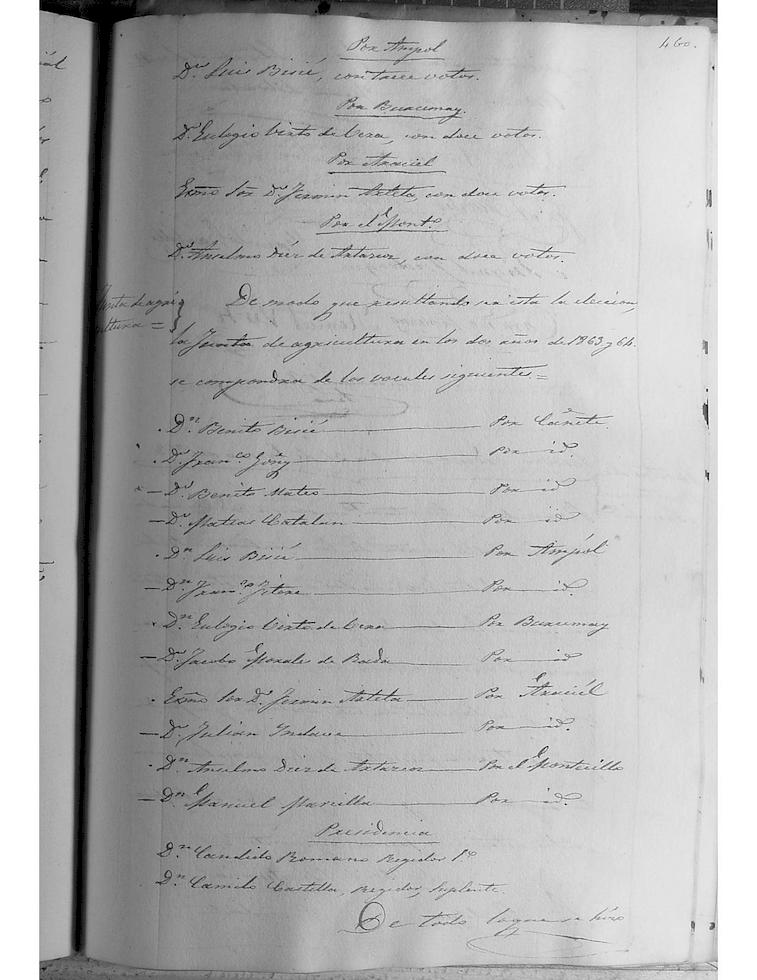 460.
Por Ampol
Dn. Luis Bisié, con trece votos.
Por Buxumay.
Dn. Eulogio Virto de Vera, con doce votos.
Por Araciel
Exmo Sor Dn. Fermin Arteta, con doce votos.
Por el Monto.
Dn. Anselmo Diez de Artazcoz, con doce votos.
Junta de agri
cultura =
De modo que resultando ser esta la eleccion,
la Junta de agricultura en los dos años de 1863 y 64.
se compondra de los vocales siguientes =
Dn. Benito Bisié Por Cañete
Dn. Franco. Goñy Por id.
Dn. Benito Mateo Por id
Dn. Matias Catalan Por id
Dn. Luis Bisié Por Ampol
Dn. Franco. Por id.
Dn. Eulogio Virto de Vera Por Buxumay
Dn. Jacobo Morales de Rada Por id
Exmo Sor Dn. Fermin Arteta Por Araciel
Dn. Julian Por id.
Dn. Anselmo Diez de Artazcoz Por el Montecillo
Dn. Manuel Marcilla Por id.
Presidencia
Dn. Candido Romano Regidor 1o
Dn. Camilo Castilla, Regidor, Suplente.
De todo lo que se hizo